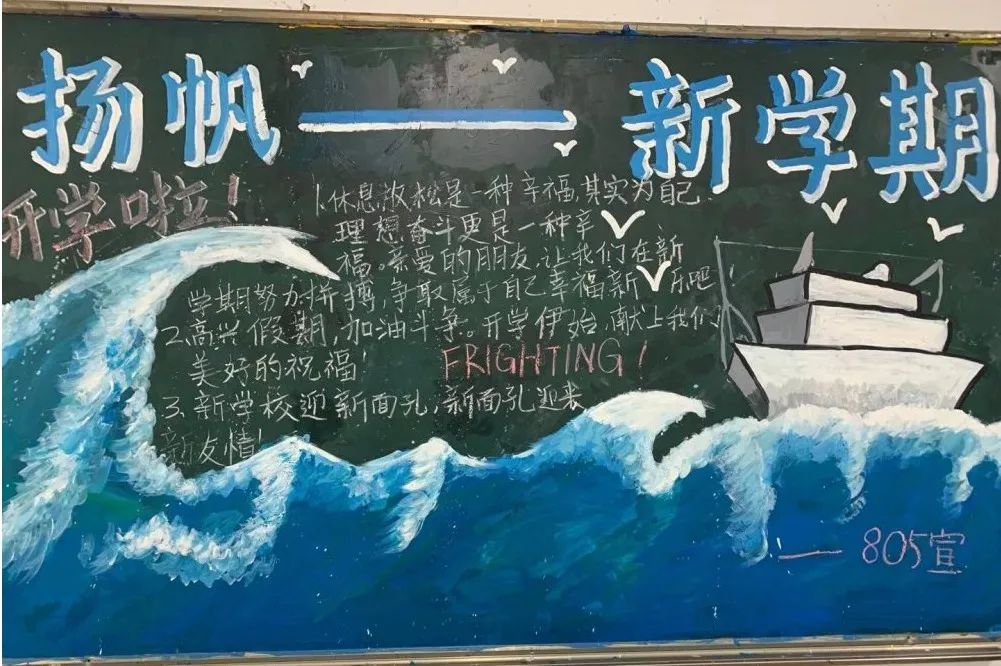 扬帆——新学期
开学啦!
1.休息放松是一种幸福,其实为自己
理想奋斗更是一种幸
福。亲爱的朋友,让我们在新
学期努力拼搏,争取属于自己幸福新 乐吧
2.高兴假期,加油斗争。开学伊始,献上我们
美好的祝福!
FRIGHTING!
3.新学校迎新面孔,新面孔迎来
新友情!
——805宣